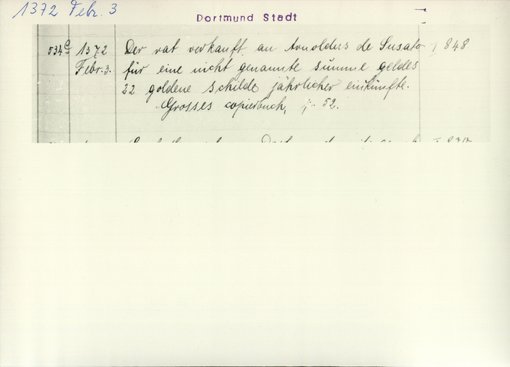 1372 Febr. 3
Dortmund Stadt
534a 1372 Der rat verkauft an Arnoldus de Susato 848
Febr. 3. für eine nicht genannte summe geldes
22 goldene schilde jährlicher einkünfte.
Grosses copierbuch, 52.